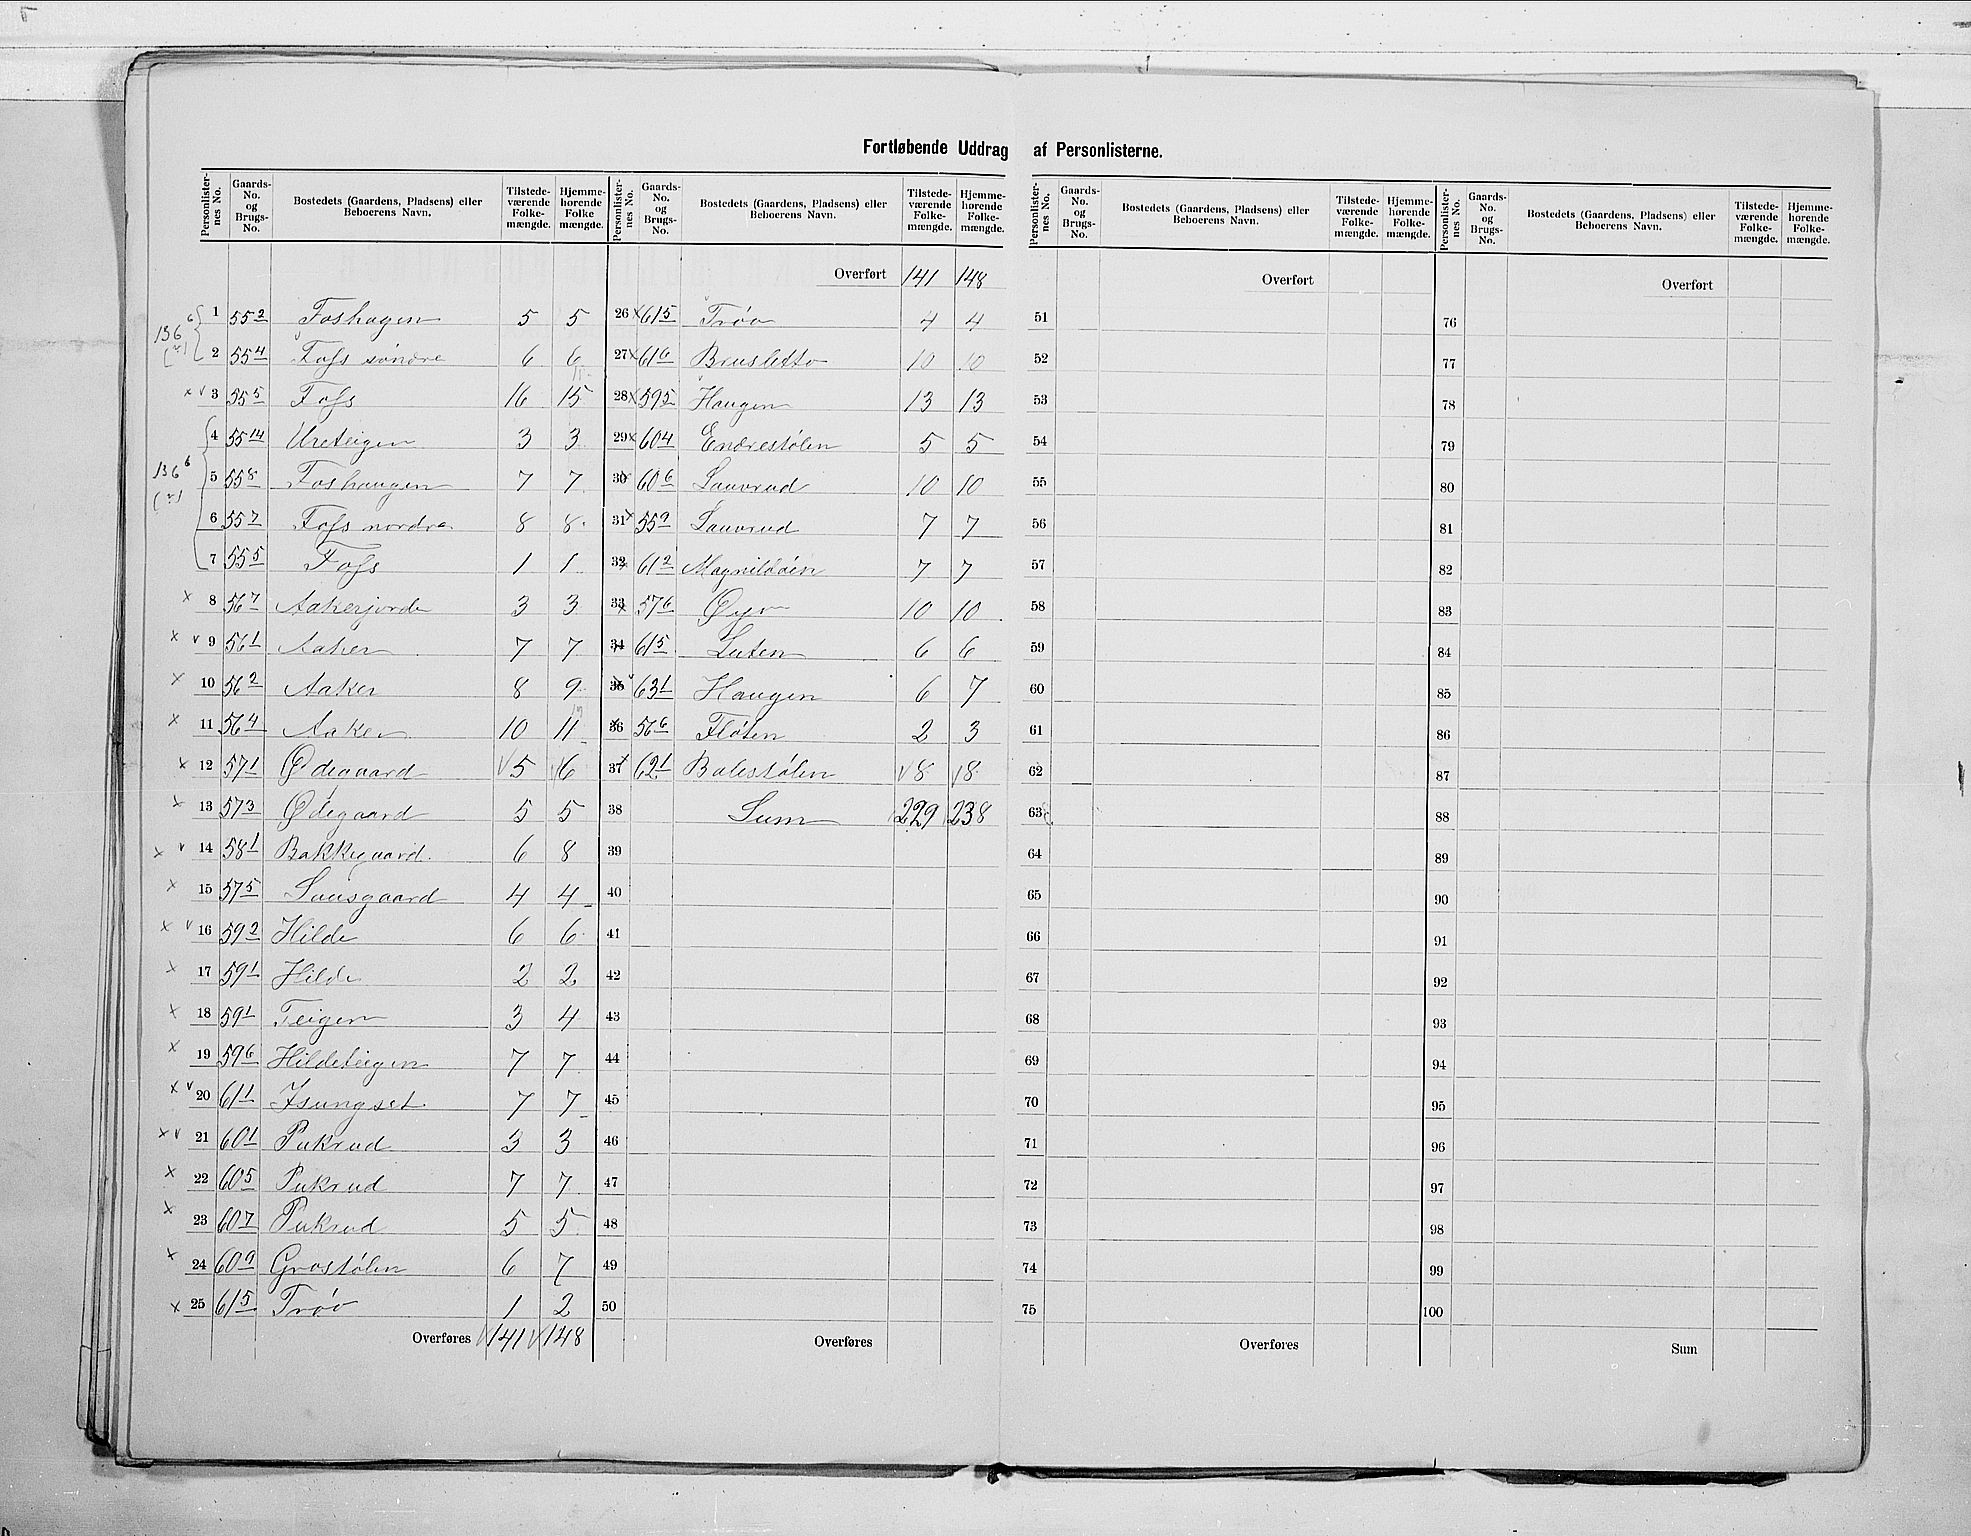 Fortløbende Uddrag af Personlisterne.
Personlister-nes No. Gaards-No. og Brugs-No. Bostedets (Gaardens, Pladsens) eller Beboerens Navn. Tilstede-værende Folke-mængde. Hjemme-hørende Folke mængde.
1 55 2 Foshagen 5 5
2 55 4 Fofs søndre 6 6
3 55 5 Fofs 16 15
4 55 14 Ureteigen 3 3
5 55 8 Foshaugen 7 7
6 55 7 Fofs nordre 8 8
7 55 5 Fofs 1 1
8 56 7 Aakerjorde 3 3
9 56 1 Aaker 7 7
10 56 2 Aaker 8 9
11 56 4 Aaker 10 11
12 57 1 Ødegaard 5 6
13 57 3 Ødegaard 5 5
14 58 1 Bakkegaard 6 8
15 57 5 4 4
16 59 2 Hilde 6 6
17 59 1 Hilde 2 2
18 59 1 Teigen 3 4
19 59 6 Hildeteigen 7 7
20 61 1 Isungset 7 7
21 60 1 Pukrud 3 3
22 60 5 Pukrud 7 7
23 60 7 Pukrud 5 5
24 60 9 Grostølen 6 7
25 61 5 Trøo 1 2
Overføres 141 148
Personlister-nes No. Gaards-No. og Brugs-No. Bostedets (Gaardens, Pladsens) eller Beboerens Navn. Tilstede-værende Folke-mængde. Hjemme-hørende Folke-mængde.
Overført 141 148
26 61 5 Trøo 4 4
27 61 6 Brusletto 10 10
28 59 5 Haugen 13 13
29 60 4 Endrestølen 5 5
30 60 6 Sauvrud 10 10
31 55 9 Sauvrud 7 7
32 61 2 Magnildøin 7 7
33 57 6 Øyo 10 10
34 61 5 Luten 6 6
35 63 1 Haugen 6 7
36 56 6 Fløten 2 3
37 62 1 Balestølen 8 8
38 Sum 229 238
39
40
41
42
43
44
45
46
47
48
49
50
Overføres
Personlister-nes No. Gaards-No. og Brugs-No. Bostedets (Gaardens, Pladsens) eller Beboerens Navn. Tilstede-værende Folke-mængde. Hjemme-hørende Folke-mængde.
Overført
51
52
53
54
55
56
57
58
59
60
61
62
63
64
65
66
67
68
69
70
71
72
73
74
75
Overføres
Personlister-nes No. Gaards-No. og Brugs-No. Bostedets (Gaardens, Pladsens) eller Beboerens Navn. Tilstede-værende Folke-mængde. Hjemme-hørende Folke-mængde.
Overført
76
77
78
79
80
81
82
83
84
85
86
87
88
89
90
91
92
93
94
95
96
97
98
99
100
Sum
136 6
136 6